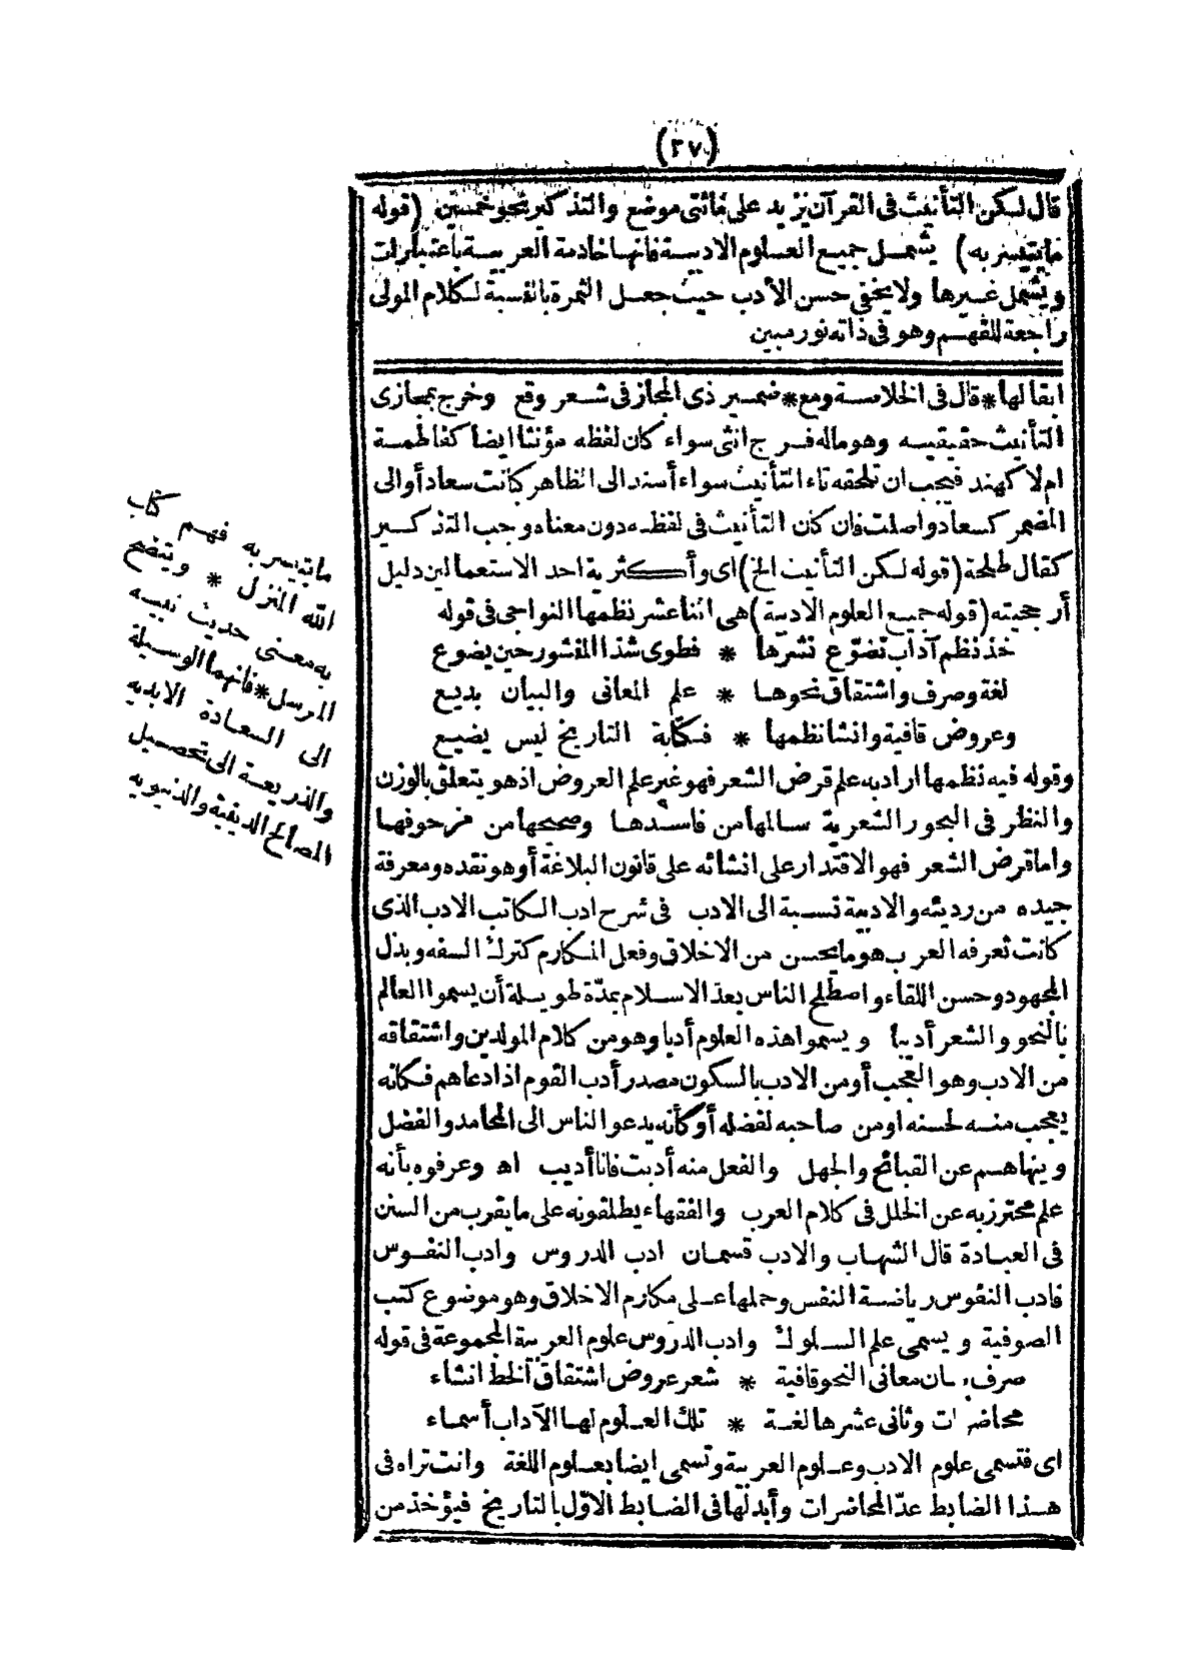 (٢٧)
قال لكن التأنيث فى القرآن يزيد على مائتى موضع والتذكير نحو خمسين (قوله
ما يتيسر به) يشمل جميع العلوم الادبية فانها خادمة العربية باعتبارات
ويشمل غيرها ولا يخفى حسن الأدب حيث جعل الثمرة بالنسبة لكلام المولى
راجعة للفهم وهو فى ذاته نور مبين
ابقالها * قال فى الخلاصة ومع * ضمير ذى المجاز فى شعر وقع وخرج بمجازى
التأنيث حقيقيه وهو ماله فرج انثى سواء كان لفظه مؤنثا ايضا كفاطمة
ام لا كهند فيجب ان تلحقه تاء التأنيث سواء أسند الى الظاهر كانت سعاد أو الى
المضمر كسعاد واصلت فان كان التأنيث فى لفظه دون معناه وجب التذكير
كقال طلحة (قوله لكن التأنيث الخ) اى وأكثرية احد الاستعمالين دليل
أرجحيته (قوله جميع العلوم الادبية) هى اثنا عشر نظمها النواجى فى قوله
خذ نظم آداب تضوّع نشرها * فطوى شذا المنثور حين يضوع
لغة وصرف واشتقاق نحوها * علم المعانى والبيان بديع
وعروض قافية وانشا نظمها * فكتابة التاريخ ليس يضيع
وقوله فيه نظمها اراد به علم قرض الشعر فهو غير علم العروض اذ هو يتعلق بالوزن
والنظر فى البحور الشعرية سالمها من فاسدها وصحيحها من مزحوفها
واما قرض الشعر فهو الاقتدار على انشائه على قانون البلاغة أو هو نقده ومعرفة
جيده من رديئه والادبية نسبة الى الادب فى شرح ادب الكاتب الادب الذى
كانت تعرفه العرب هو ما يحسن من الاخلاق وفعل المكارم كترك السفه وبذل
المجهود وحسن اللقاء واصطلح الناس بعد الاسلام بمدّة طويلة أن يسموا العالم
بالنحو والشعر أديبا ويسموا هذه العلوم أدبا وهو من كلام المولدين واشتقاقه
من الادب وهو العجب أو من الادب بالسكون مصدر أدب القوم اذا دعاهم فكانه
يعجب منه لحسنه او من صاحبه لفضله أو كأنه يدعو الناس الى المحامد والفضل
وينهاهم عن القبائح والجهل والفعل منه أدبت فانا أديب اه وعرفوه بأنه
علم محترز به عن الخلل فى كلام العرب والفقهاء يطلقونه على ما يقرب من السنن
فى العبادة قال الشهاب والادب قسمان ادب الدروس وادب النفوس
فادب النفوس رياضة النفس وحملها على مكارم الاخلاق وهو موضوع كتب
الصوفية ويسمى علم السلوك وادب الدروس علوم العربية المجموعة فى قوله
صرف بيان معانى النحو قافية * شعر عروض اشتقاق الخط انشاء
محاضرات وثانى عشرها لغة * تلك العلوم لها الآداب أسماء
اى فتسمى علوم الادب وعلوم العربية وتسمى ايضا بعلوم اللغة وانت تراه فى
هذا الضابط عدّ المحاضرات وأبدلها فى الضابط الاوّل بالتاريخ فيؤخذ من
ما يتيسر به فهم كتاب
الله المنزل * ويتضح
به معنى حديث نبيه
المرسل * فانهما الوسيلة
الى السعادة الابديه
والذريعة الى تحصيل
المصالح الدينية والدنيويه